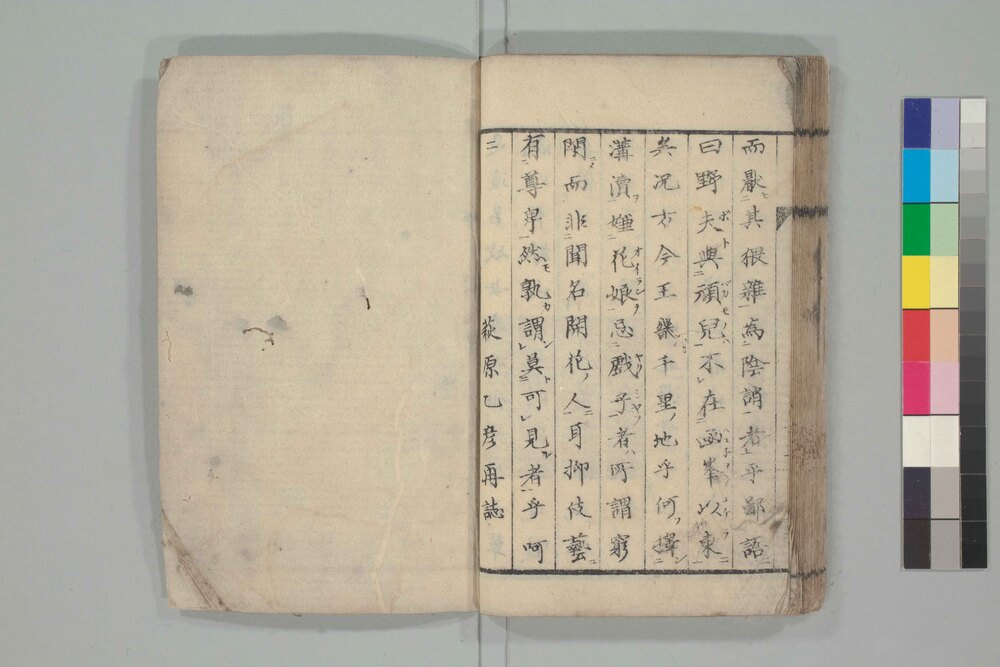 而厭其猥雜為陰誚者乎鄙語
曰野夫與頑兒不在函峯以東
矣况方今王畿千里地乎何擇
溝瀆嫌花娘忌戲子者所謂窮
閑而非聞名開花人耳抑伎藝
有尊卑然孰謂莫可見者乎呵
二 萩原乙彦再誌